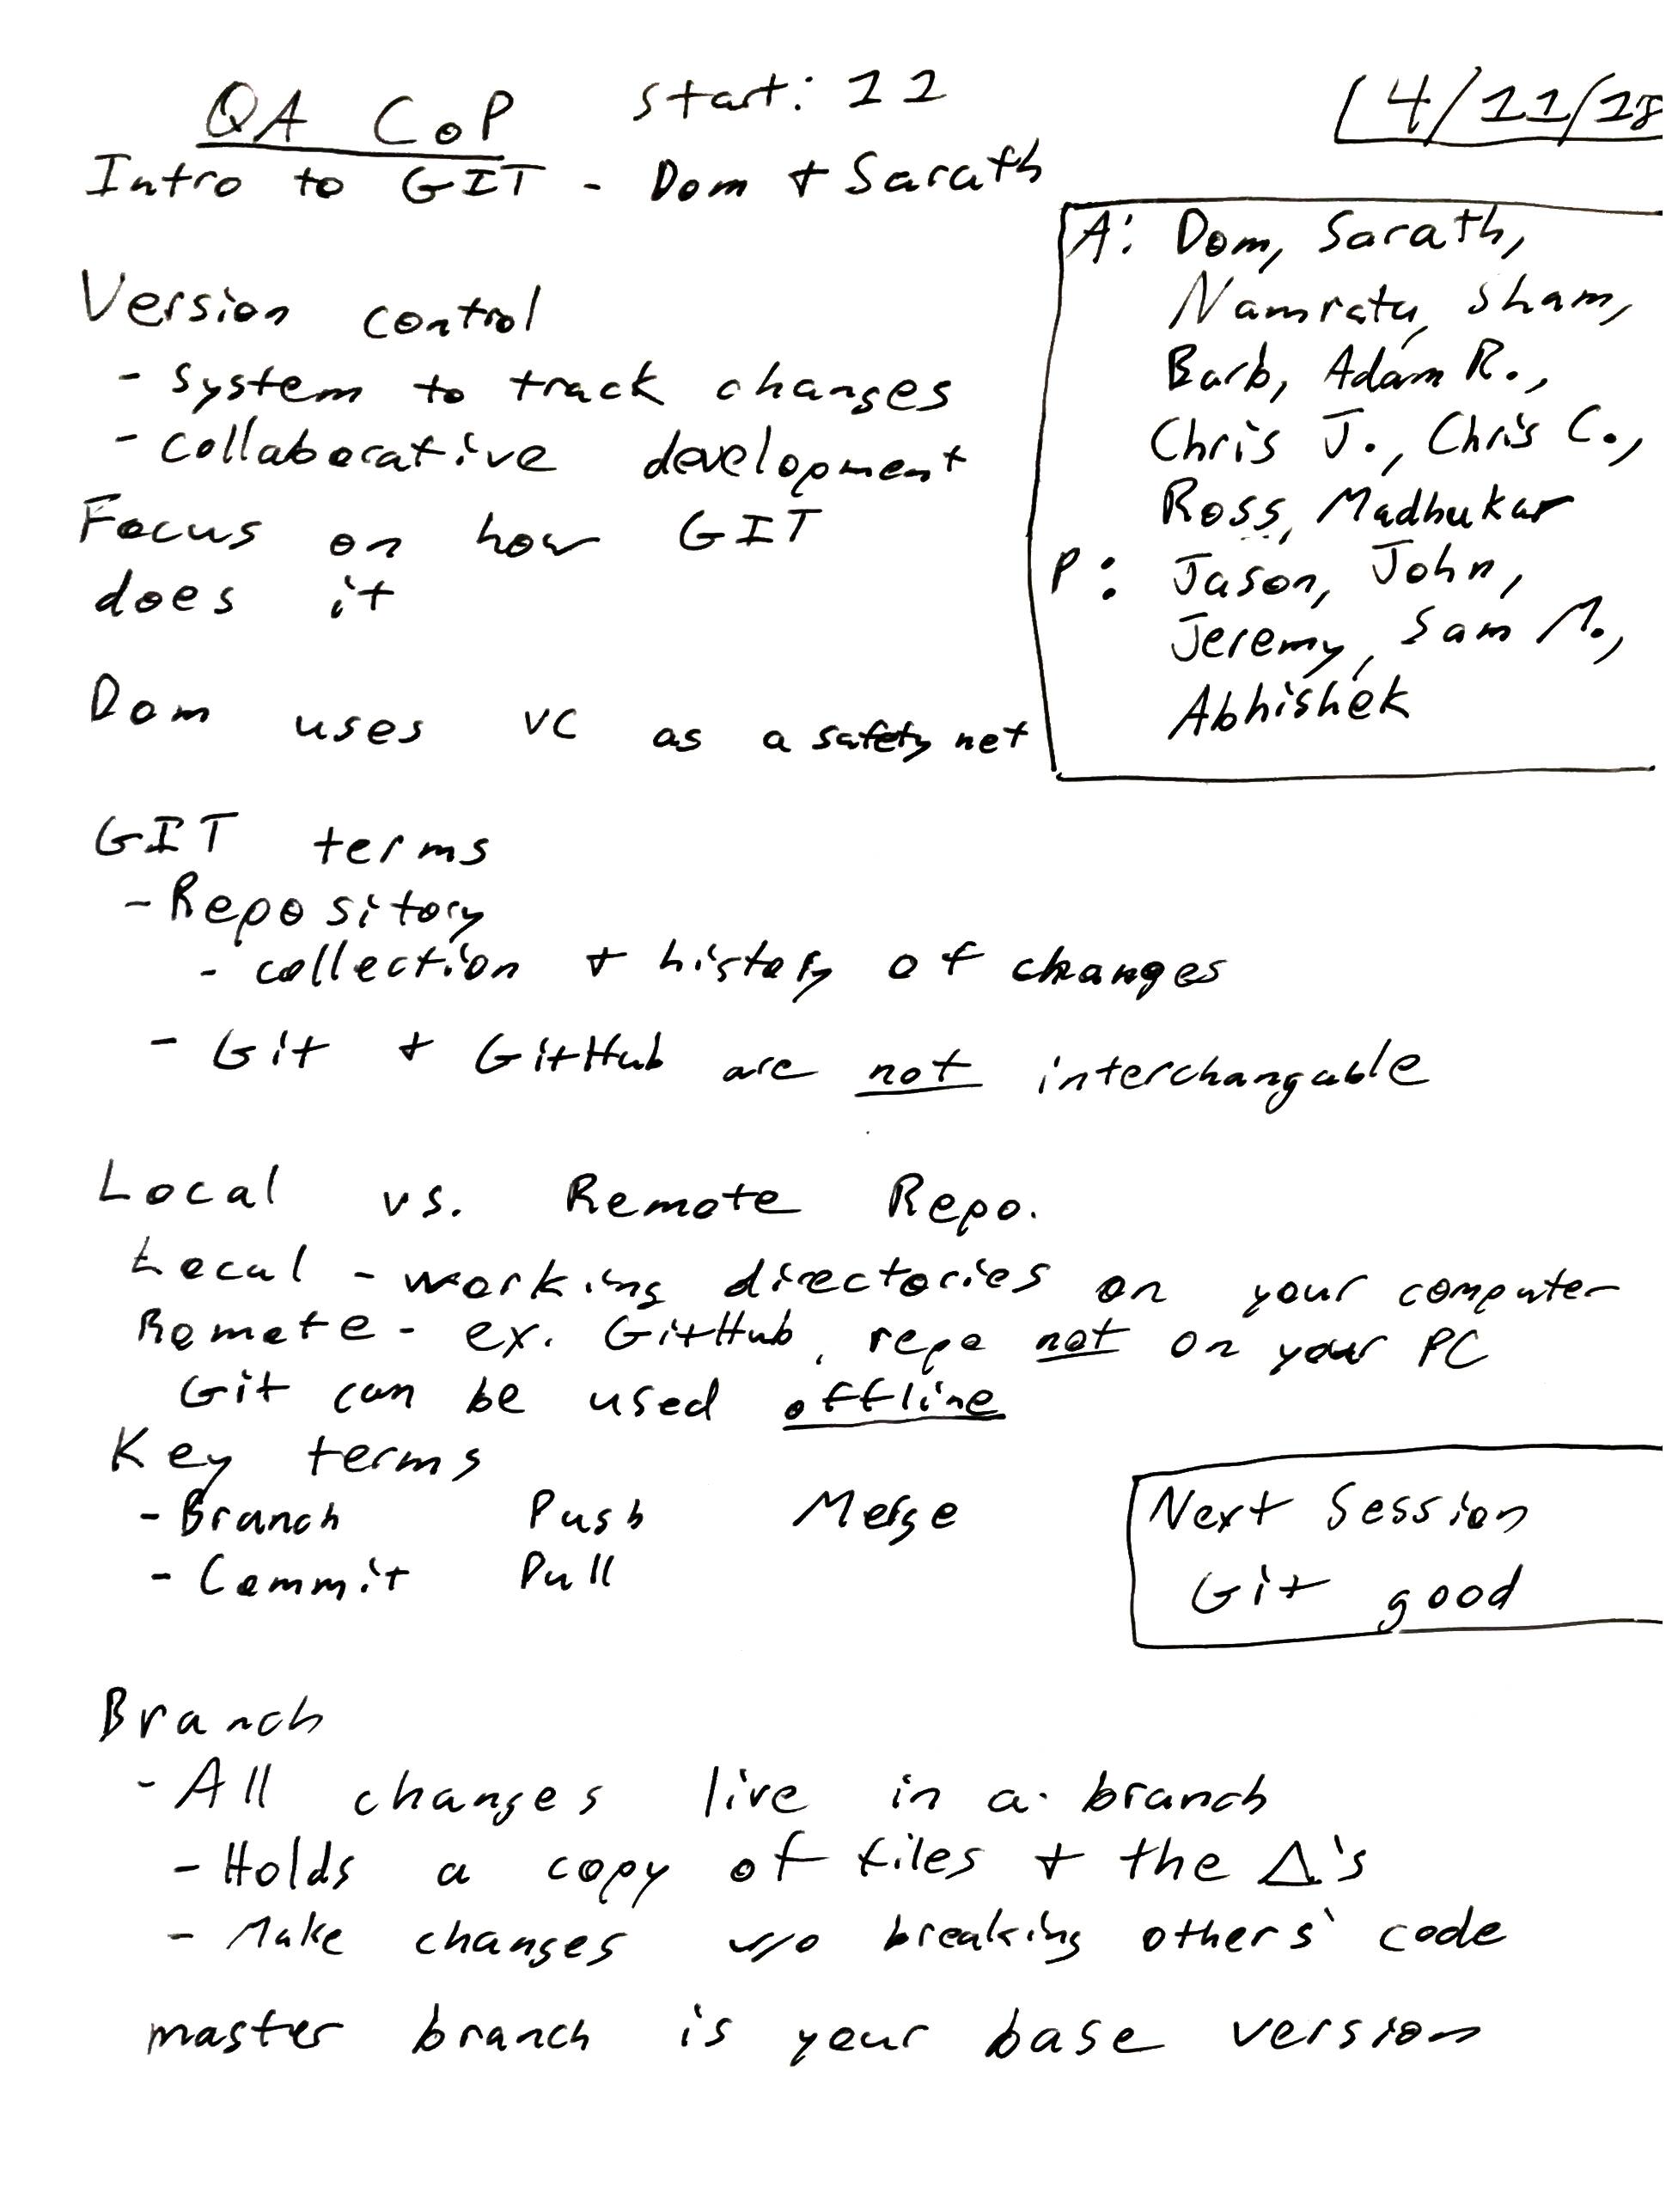 QA CoP start: 11
4/11/18
Intro to GIT - Dom + Sarath
A: Dom, Sarath,
Namrata, Sham,
Barb, Adam R.,
Chris J., Chris C.,
Ross, Madhukar
P: Jason, John,
Jeremy, Sam M.,
Abhishek
Version control
- system to track changes
- collaborative development
Focus on how GIT
does it
Dom uses VC as a safety net
GIT terms
- Repository
- collection + history of changes
- Git + GitHub are not interchangable
Local vs. Remote Repo.
Local - working directories on your computer
Remote - ex. GitHub, repo not on your PC
Git can be used offline
Key terms
- Branch Push Merge
- Commit Pull
Next Session
Git good
Branch
- All changes live in a branch
- Holds a copy of files + the Δ's
- Make changes w/o breaking others' code
master branch is your base version